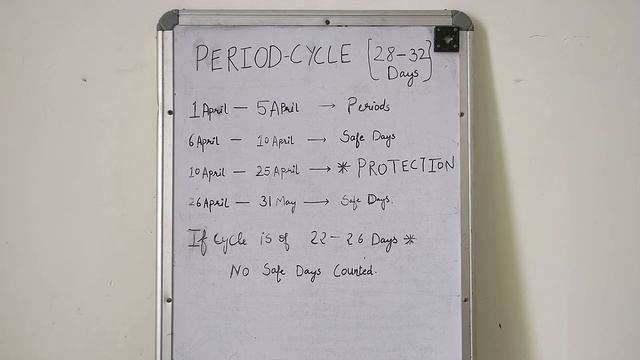 PERIOD-CYCLE [28-32 Days]
1 April — 5 April → Periods
6 April — 10 April → Safe Days
10 April — 25 April → * PROTECTION
26 April — 31 May → Safe Days.
If cycle is of 22-26 Days *
No Safe Days Counted.